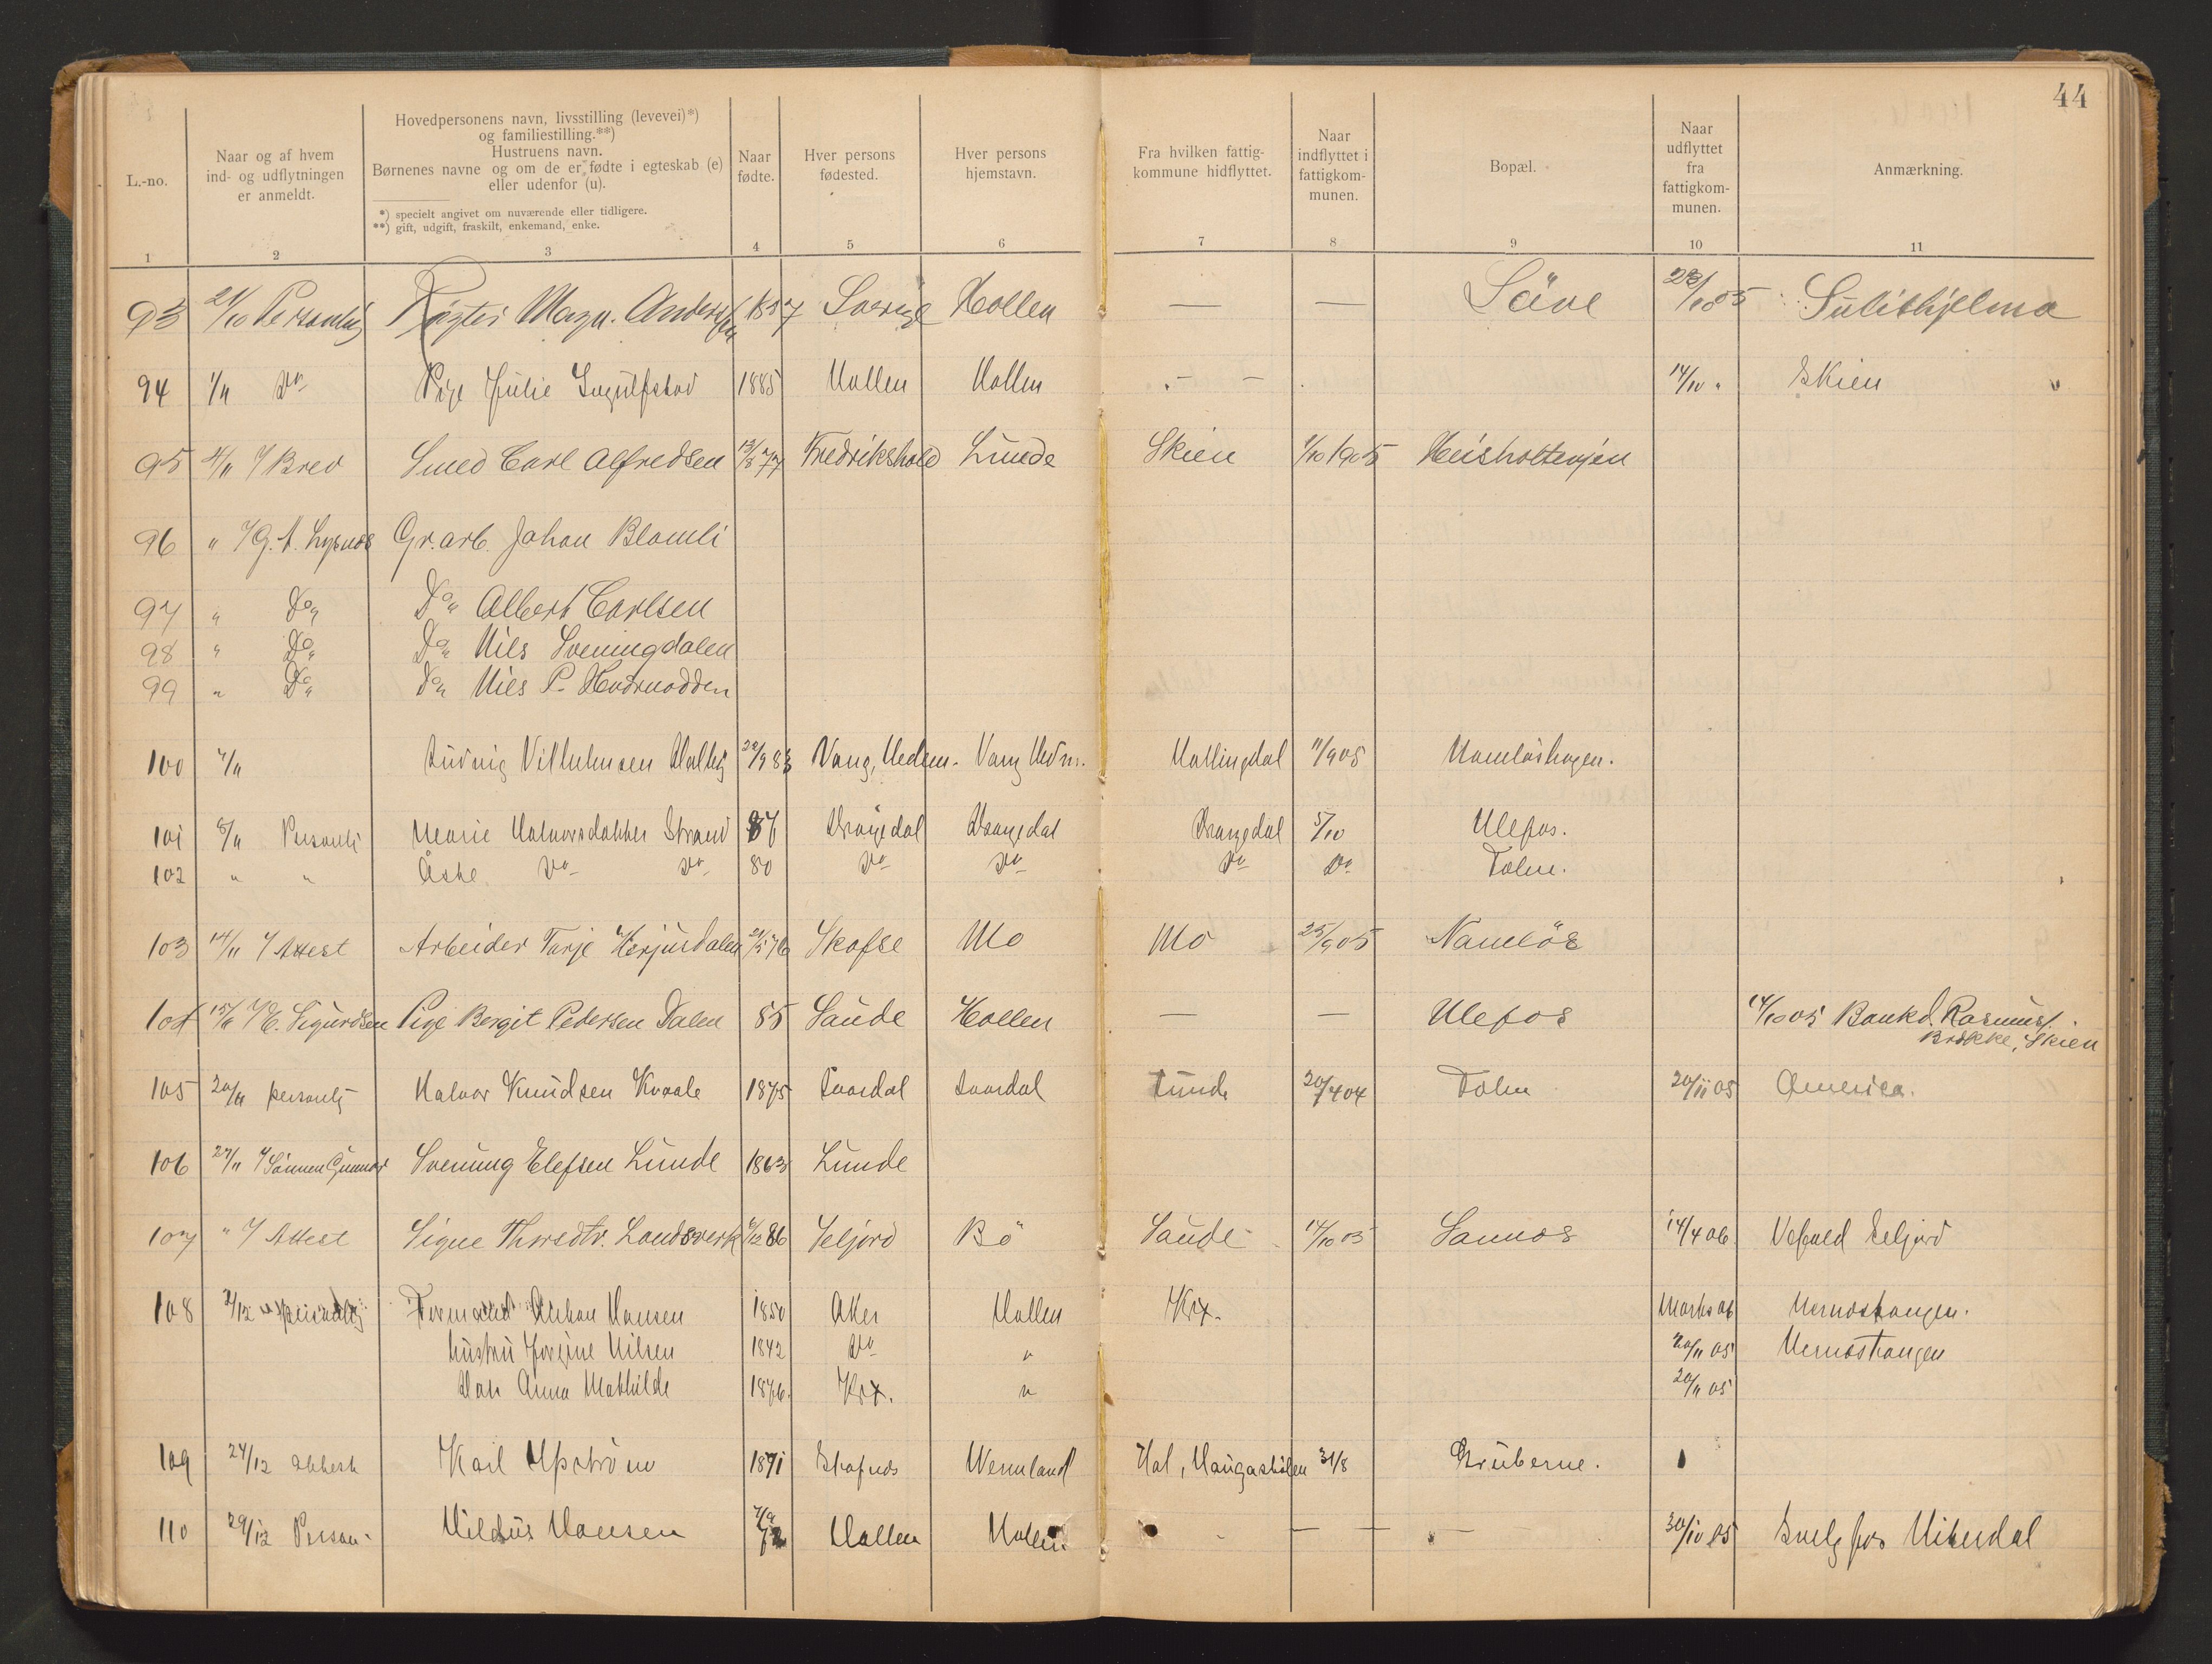 44
L.-no.
Naar og af hvem
ind- og udflytningen
er anmeldt.
Hovedpersonens navn, livsstilling (levevei)*)
og familiestilling.**)
Hustruens navn.
Børnenes navne og om de er fødte i egteskab (e)
eller udenfor (u).
*) specielt angivet om nuværende eller tidligere.
**) gift, udgift, fraskilt, enkemand, enke.
Naar
fødte.
Hver persons
fødested.
Hver persons
hjemstavn.
Fra hvilken fattig-
kommune hidflyttet.
Naar
indflyttet i
fattigkom-
munen.
Bopæl.
Naar
udflyttet
fra
fattigkom-
munen.
Anmærkning.
1 2 3 4 5 6 7 8 9 10 11
93 21/10 Personlig Magn. Anders 1857 Sverige Hollen — — Søve 23/10 05 Sulithjelma
94 1/11 Do Pige Julie Ingulfstad 1885 Hollen Hollen — — 14/10 " Skien
95 4/11 / Brev Smed Carl Alfredsen 77 Fredrikshald Lunde Skien 1/10 1905 Heisholtveien
96 " / G. A. Gr.arb. Johan Blomli
97 " Do Do Albert Carlsen
98 " Do Do Nils Sveningdalen
99 " Do Do Nils P.
100 7/11 Ludvig Vilhelmsen 83 Vang, Hedem. Vang Hedm. Hallingdal 11/9 05 Namløshagen.
101 8/11 Personli Marie Halvorsdatter Strand 87 Drangedal Drangedal Drangedal 5/10 Ulefos.
102 " " Åste Do Do 80 Do Do Do Do Dolm.
103 14/11 / Attest Arbeider Tarje Herjusdalen 76 Skafse Mo Mo 25/9 05 Namløs
104 15/11 / C. Sigurdsen Pige Bergit Pedersen Dalen 85 Saude Hollen — — Ulefos 14/10 05 Bankd. Rasmus
Brekke, Skien
105 20/11 personlig Halvor Knudsen Kvaale 1875 Svardal Svardal Lunde 20/4 04 Dolm 20/11 05 America.
106 27/11 / Sønnen Gunnar Svenung Elefsen Lunde 1863 Lunde
107 " / Attest Signe Thorsdtr. Landsverk 86 Seljord Bø Saude 14/10 05 Sannes 14/4 06 Seljord
108 2/12 personlig Hansen 1850 Aker Hollen Krx. Marts 06 Hernæstangen.
hustru Jorgine Nilsen 1842 Do " 20/11 05 Hernæstangen
Anna Mathilde 1876. Krx. " 20/11 05
109 24/12 attest Karl 1871 Wermland Hol, 31/8 Gruberne.
110 29/12 Person- Hansen Hollen Hollen — — — 30/10 05 Svelgfos Hiterdal